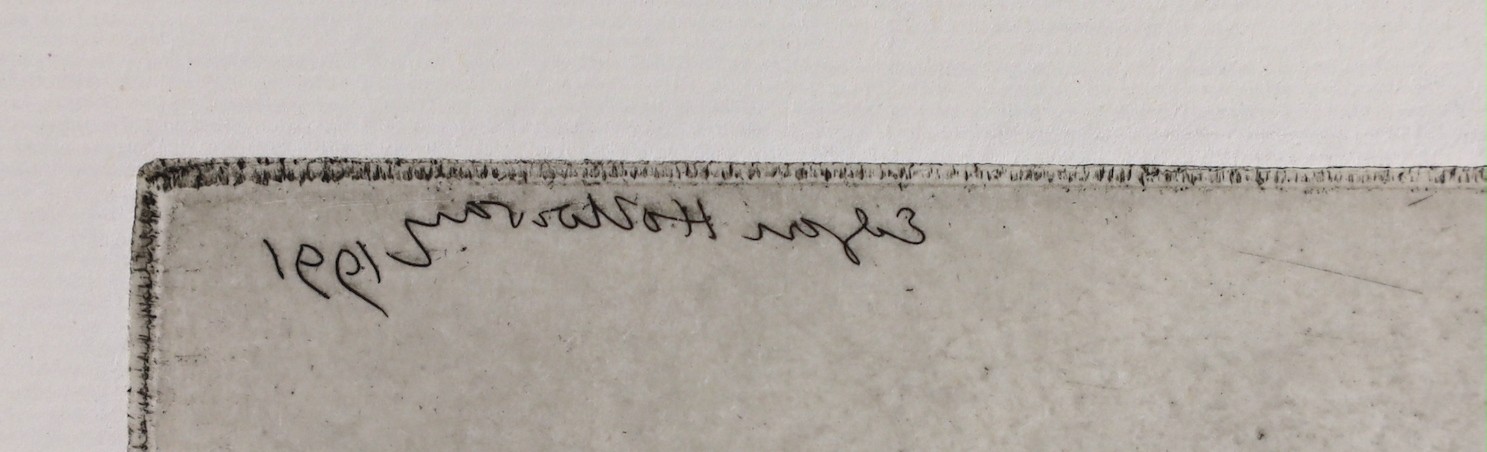 Edgar Holloway
1991